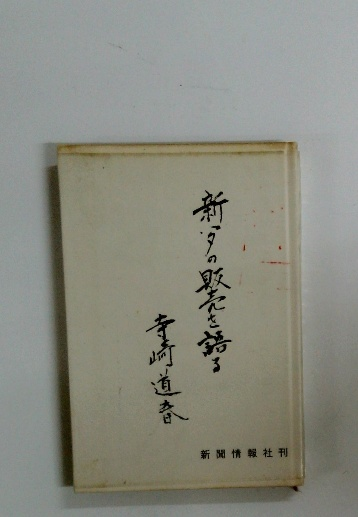 新聞の販売を語る
寺崎道春
新聞情報社刊